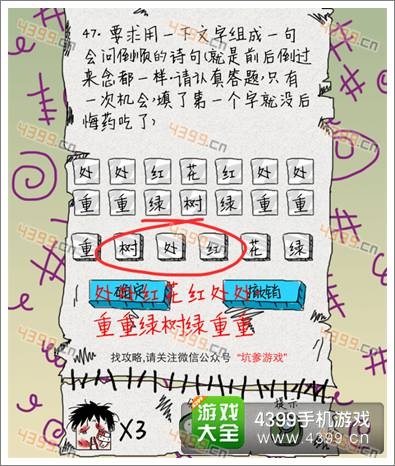 47. 要求用一下文字组成一句
会问倒顺的诗句(就是前后倒过
来念都一样.请认真答题,只有
一次机会,填了第一个字就没后
悔药吃了)
处 处 红 花 红 处 处
重 重 绿 树 绿 重 重
重 树 处 红 花 绿
确定 撤销
处处红花红处处
重重绿树绿重重
找攻略,请关注微信公众号 “坑爹游戏”
X3
提示
游戏大全
4399手机游戏
www.4399.cn